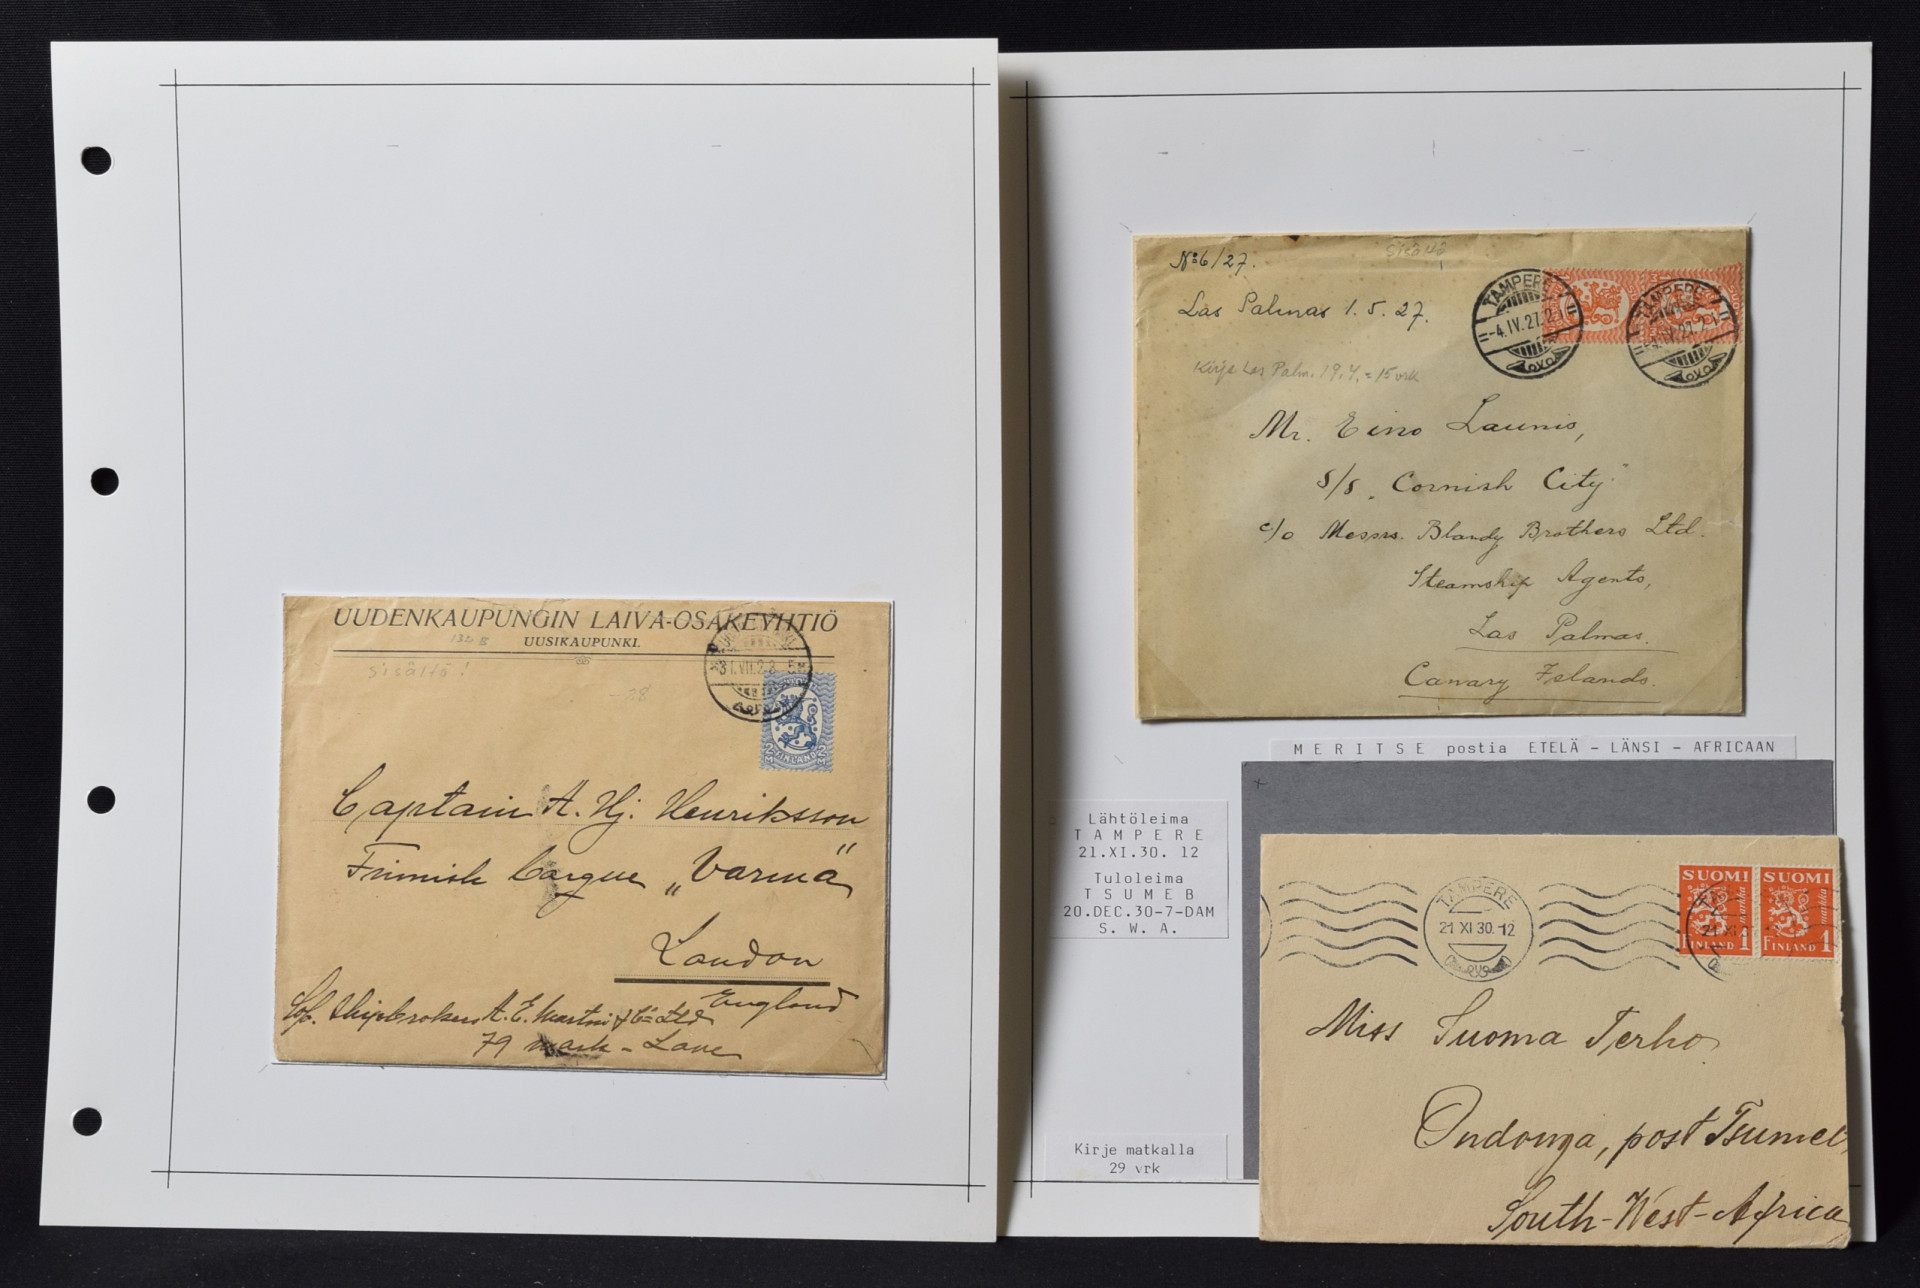 UUDENKAUPUNGIN LAIVA-OSAKEYHTIÖ
UUSIKAUPUNKI.
sisältö!
31.VII.28
FINLAND
Captain A. Hj. Henriksson
Finnish Barque „Varma"
London
England
79 Mark-Lane
No 6/27.
Las Palmas 1.5.27.
Kirje Las Palm. 19.4. = 15 vrk
TAMPERE
-4.IV.27.2
TAMPERE
Mr. Eino Launis,
S/S „Cornish City"
c/o Messrs. Blandy Brothers Ltd.
Steamship Agents,
Las Palmas.
Canary Islands.
MERITSE postia ETELÄ - LÄNSI - AFRICAAN
Lähtöleima
TAMPERE
21.XI.30. 12
Tuloleima
TSUMEB
20.DEC.30-7-DAM
S. W. A.
Kirje matkalla
29 vrk
TAMPERE
21 XI 30.12
SUOMI SUOMI
markka markka
FINLAND 1 FINLAND 1
Miss Suoma Terho
Ondonga, post Tsumeb,
South-West-Africa